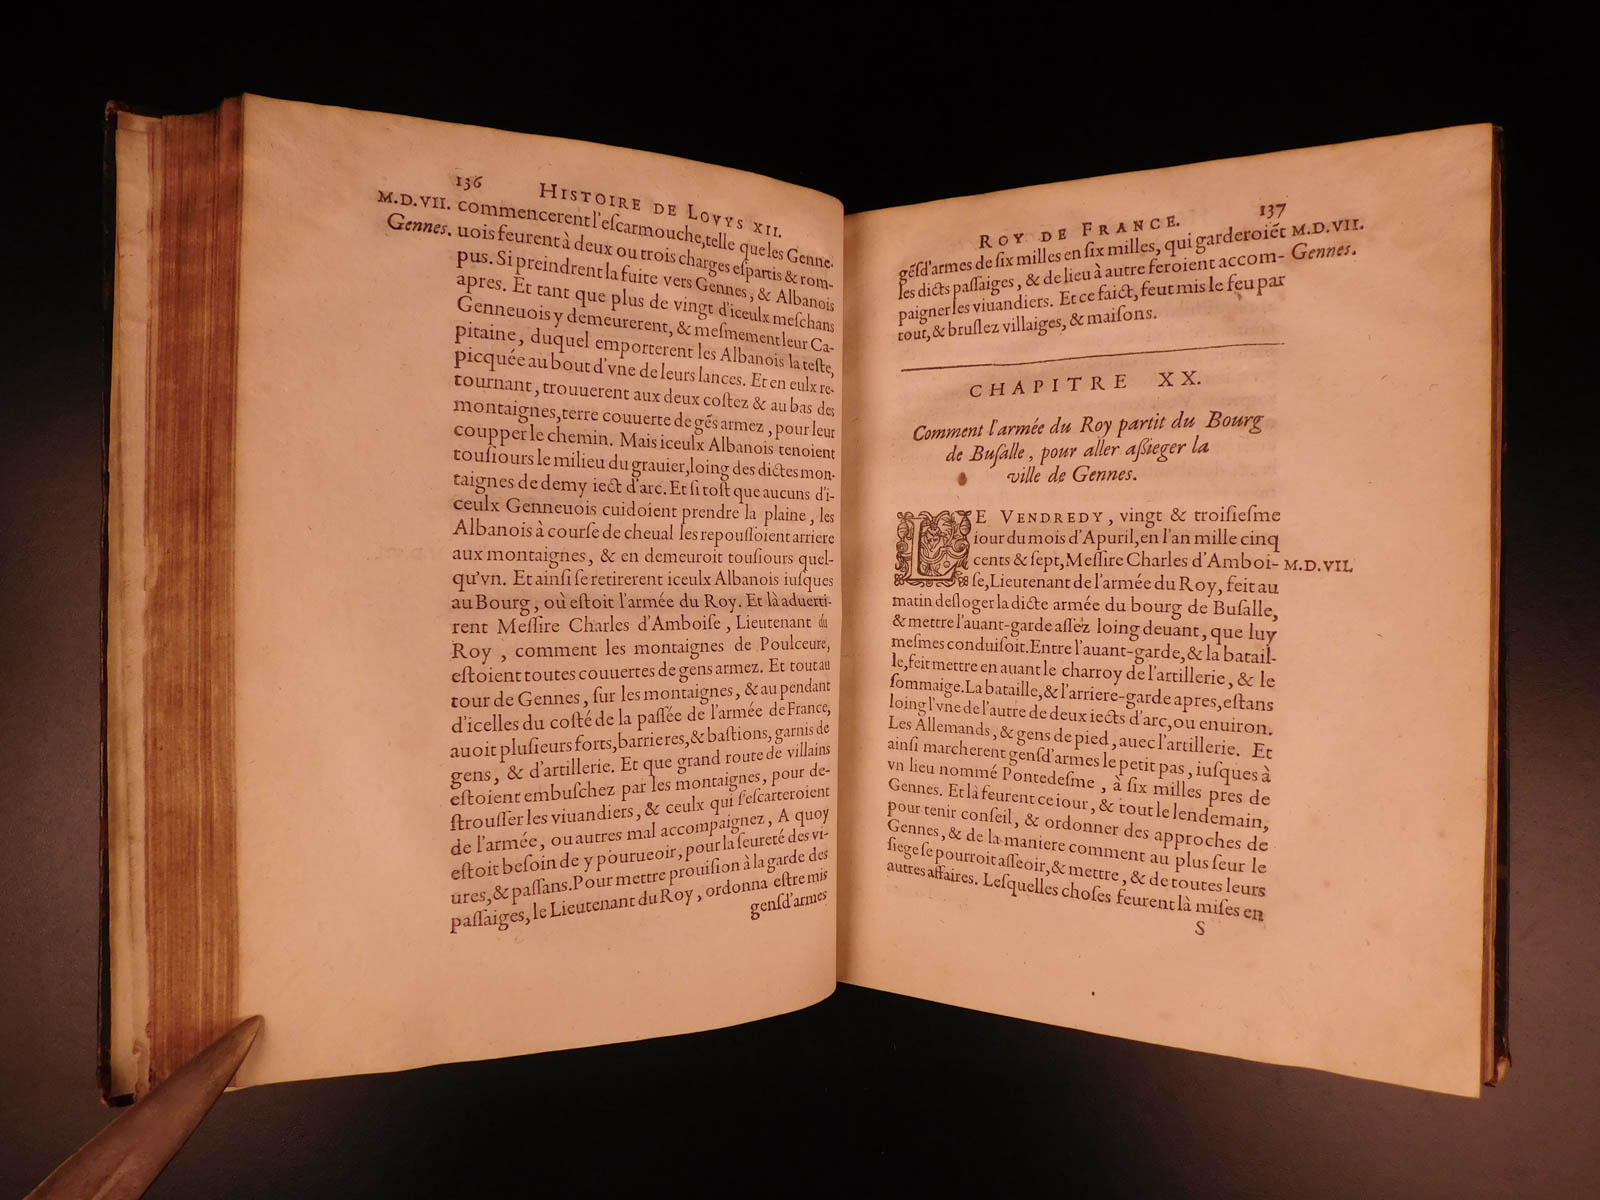 136 HISTOIRE DE LOVYS XII.
M.D.VII. commencerent l'eſcarmouche, telle que les Genne-
Gennes. uois feurent à deux ou trois charges eſpartis & rom-
pus. Si preindrent la fuite vers Gennes, & Albanois
apres. Et tant que plus de vingt d'iceulx meſchans
Genneuois y demeurerent, & meſmement leur Ca-
pitaine, duquel emporterent les Albanois la teſte,
picquée au bout d'vne de leurs lances. Et en eulx re-
tournant, trouuerent aux deux coſtez & au bas des
montaignes, terre couuerte de gẽs armez, pour leur
coupper le chemin. Mais iceulx Albanois tenoient
touſiours le milieu du grauier, loing des dictes mon-
taignes de demy iect d'arc. Et ſi toſt que aucuns d'i-
ceulx Genneuois cuidoient prendre la plaine, les
Albanois à courſe de cheual les repouſſoient arriere
aux montaignes, & en demeuroit touſiours quel-
qu'vn. Et ainſi ſe retirerent iceulx Albanois iuſques
au Bourg, où eſtoit l'armée du Roy. Et là aduerti-
rent Meſſire Charles d'Amboiſe, Lieutenant du
Roy, comment les montaignes de Poulceure,
eſtoient toutes couuertes de gens armez. Et tout au
tour de Gennes, ſur les montaignes, & au pendant
d'icelles du coſté de la paſſée de l'armée de France,
auoit pluſieurs forts, barrieres, & baſtions, garnis de
gens, & d'artillerie. Et que grand route de villains
eſtoient embuſchez par les montaignes, pour de-
ſtrouſſer les viuandiers, & ceulx qui s'eſcarteroient
de l'armée, ou autres mal accompaignez, A quoy
eſtoit beſoin de y pourueoir, pour la ſeureté des vi-
ures, & paſſans. Pour mettre prouiſion à la garde des
paſſaiges, le Lieutenant du Roy, ordonna eſtre mis
genſd'armes
ROY DE FRANCE. 137
gẽſd'armes de ſix milles en ſix milles, qui garderoiẽt M.D.VII.
les dicts paſſaiges, & de lieu à autre feroient accom- Gennes.
paigner les viuandiers. Et ce faict, feut mis le feu par
tout, & bruſlez villaiges, & maiſons.
CHAPITRE XX.
Comment l'armée du Roy partit du Bourg
de Buſalle, pour aller aßieger la
ville de Gennes.
LE VENDREDY, vingt & troiſieſme
iour du mois d'Apuril, en l'an mille cinq
cents & ſept, Meſſire Charles d'Amboi- M.D.VII.
ſe, Lieutenant de l'armée du Roy, feit au
matin deſloger la dicte armée du bourg de Buſalle,
& mettre l'auant-garde aſſez loing deuant, que luy
meſmes conduiſoit. Entre l'auant-garde, & la batail-
le, feit mettre en auant le charroy de l'artillerie, & le
ſommaige. La bataille, & l'arriere-garde apres, eſtans
loing l'vne de l'autre de deux iects d'arc, ou enuiron.
Les Allemands, & gens de pied, auec l'artillerie. Et
ainſi marcherent genſd'armes le petit pas, iuſques à
vn lieu nommé Pontedeſme, à ſix milles pres de
Gennes. Et là feurent ce iour, & tout le lendemain,
pour tenir conſeil, & ordonner des approches de
Gennes, & de la maniere comment au plus ſeur le
ſiege ſe pourroit aſſeoir, & mettre, & de toutes leurs
autres affaires. Leſquelles choſes feurent là miſes en
S